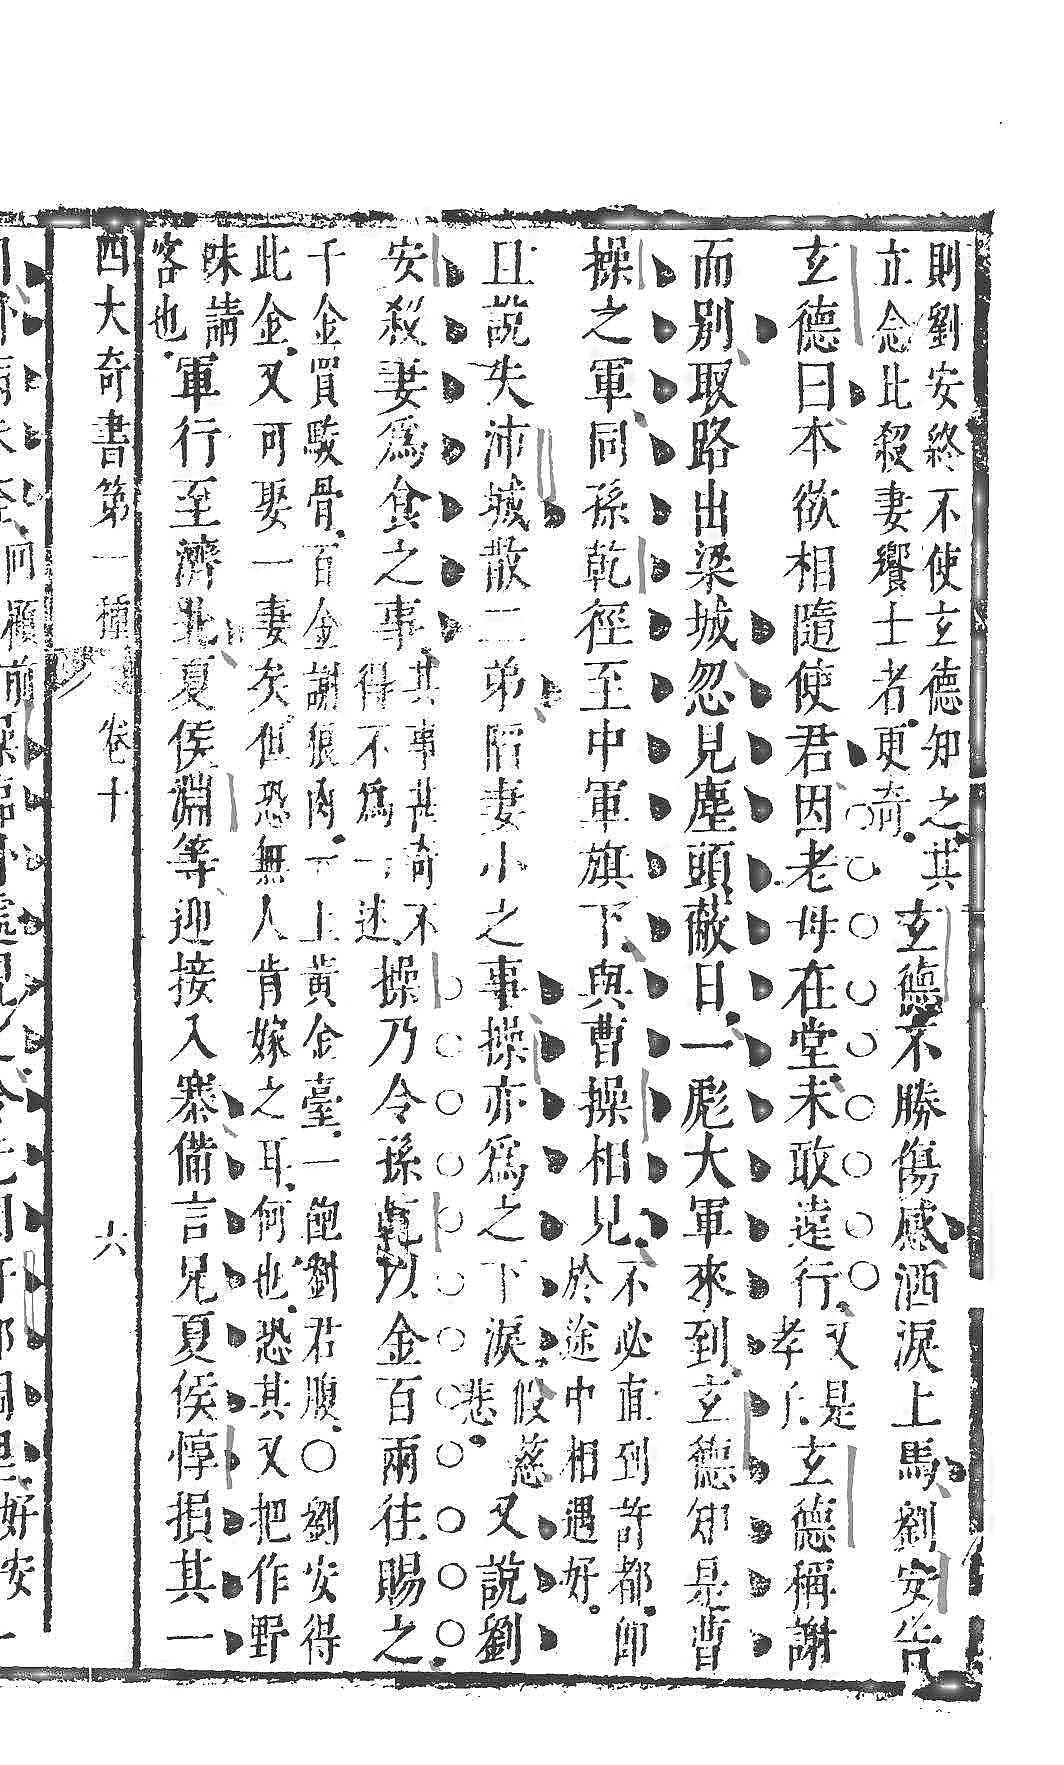 則劉安終不使玄德知之其
立念比殺妻饗士者更奇
玄德不勝傷感洒淚上馬劉安告
玄德曰本欲相隨使君因老母在堂未敢遠行
又是
孝子
玄德稱謝
而別取路出梁城忽見塵頭蔽日一彪大軍來到玄德知是曹
操之軍同孫乾徑至中軍旗下與曹操相見
不必直到許都卽
於途中相遇好
且說失沛城散二弟陷妻小之事操亦爲之下淚
假慈
悲
又說劉
安殺妻爲食之事
其事甚奇不
得不爲一述
操乃令孫乾以金百兩往賜之
千金買駿骨百金謝狼肉一上黃金臺一飽劉君腹○劉安得
此金又可娶一妻矣但恐無人肯嫁之耳何也恐其又把作野
味請
客也
軍行至濟北夏侯淵等迎接入寨備言兄夏侯惇損其一
四大奇書第一種 卷十 六